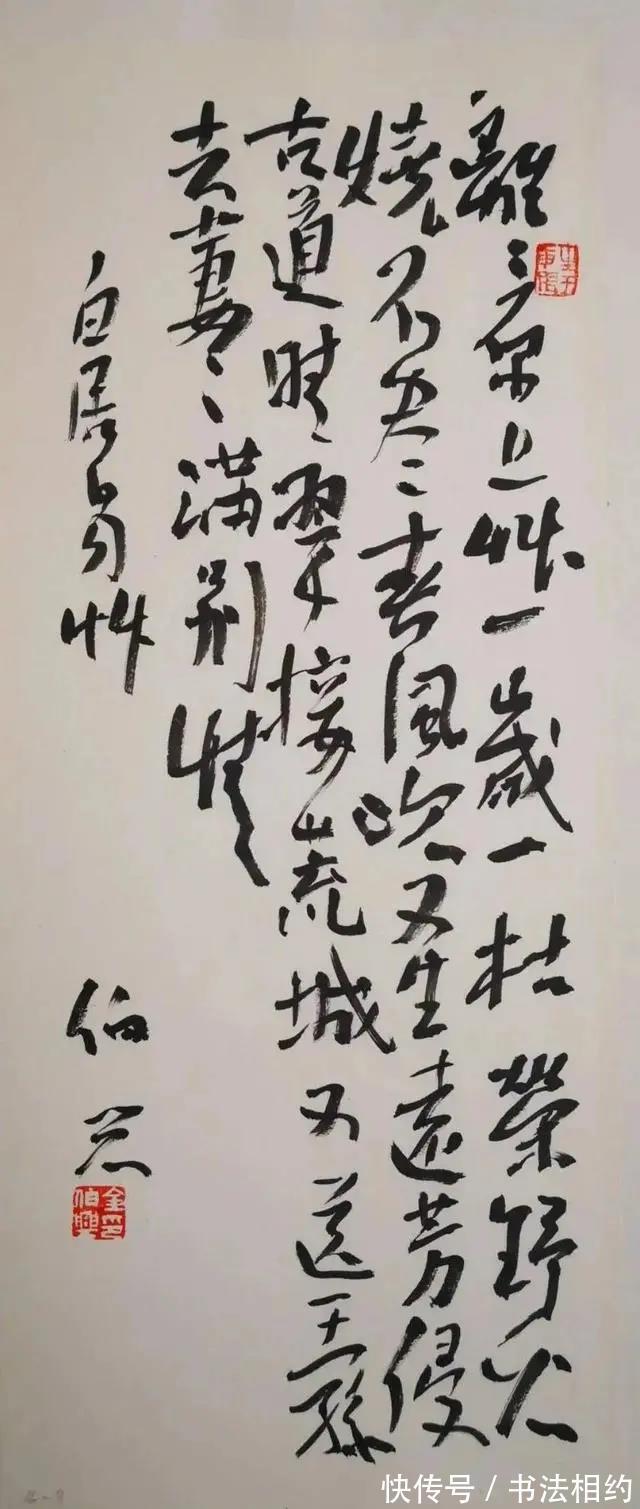 離〻原上艸一歲一枯榮野火
燒不盡〻春風吹又生遠芳侵
古道晴〻翠接荒城又送王孫
去萋〻滿別情
白居易艸
伯興
金伯興印
快传号 / 书法相约